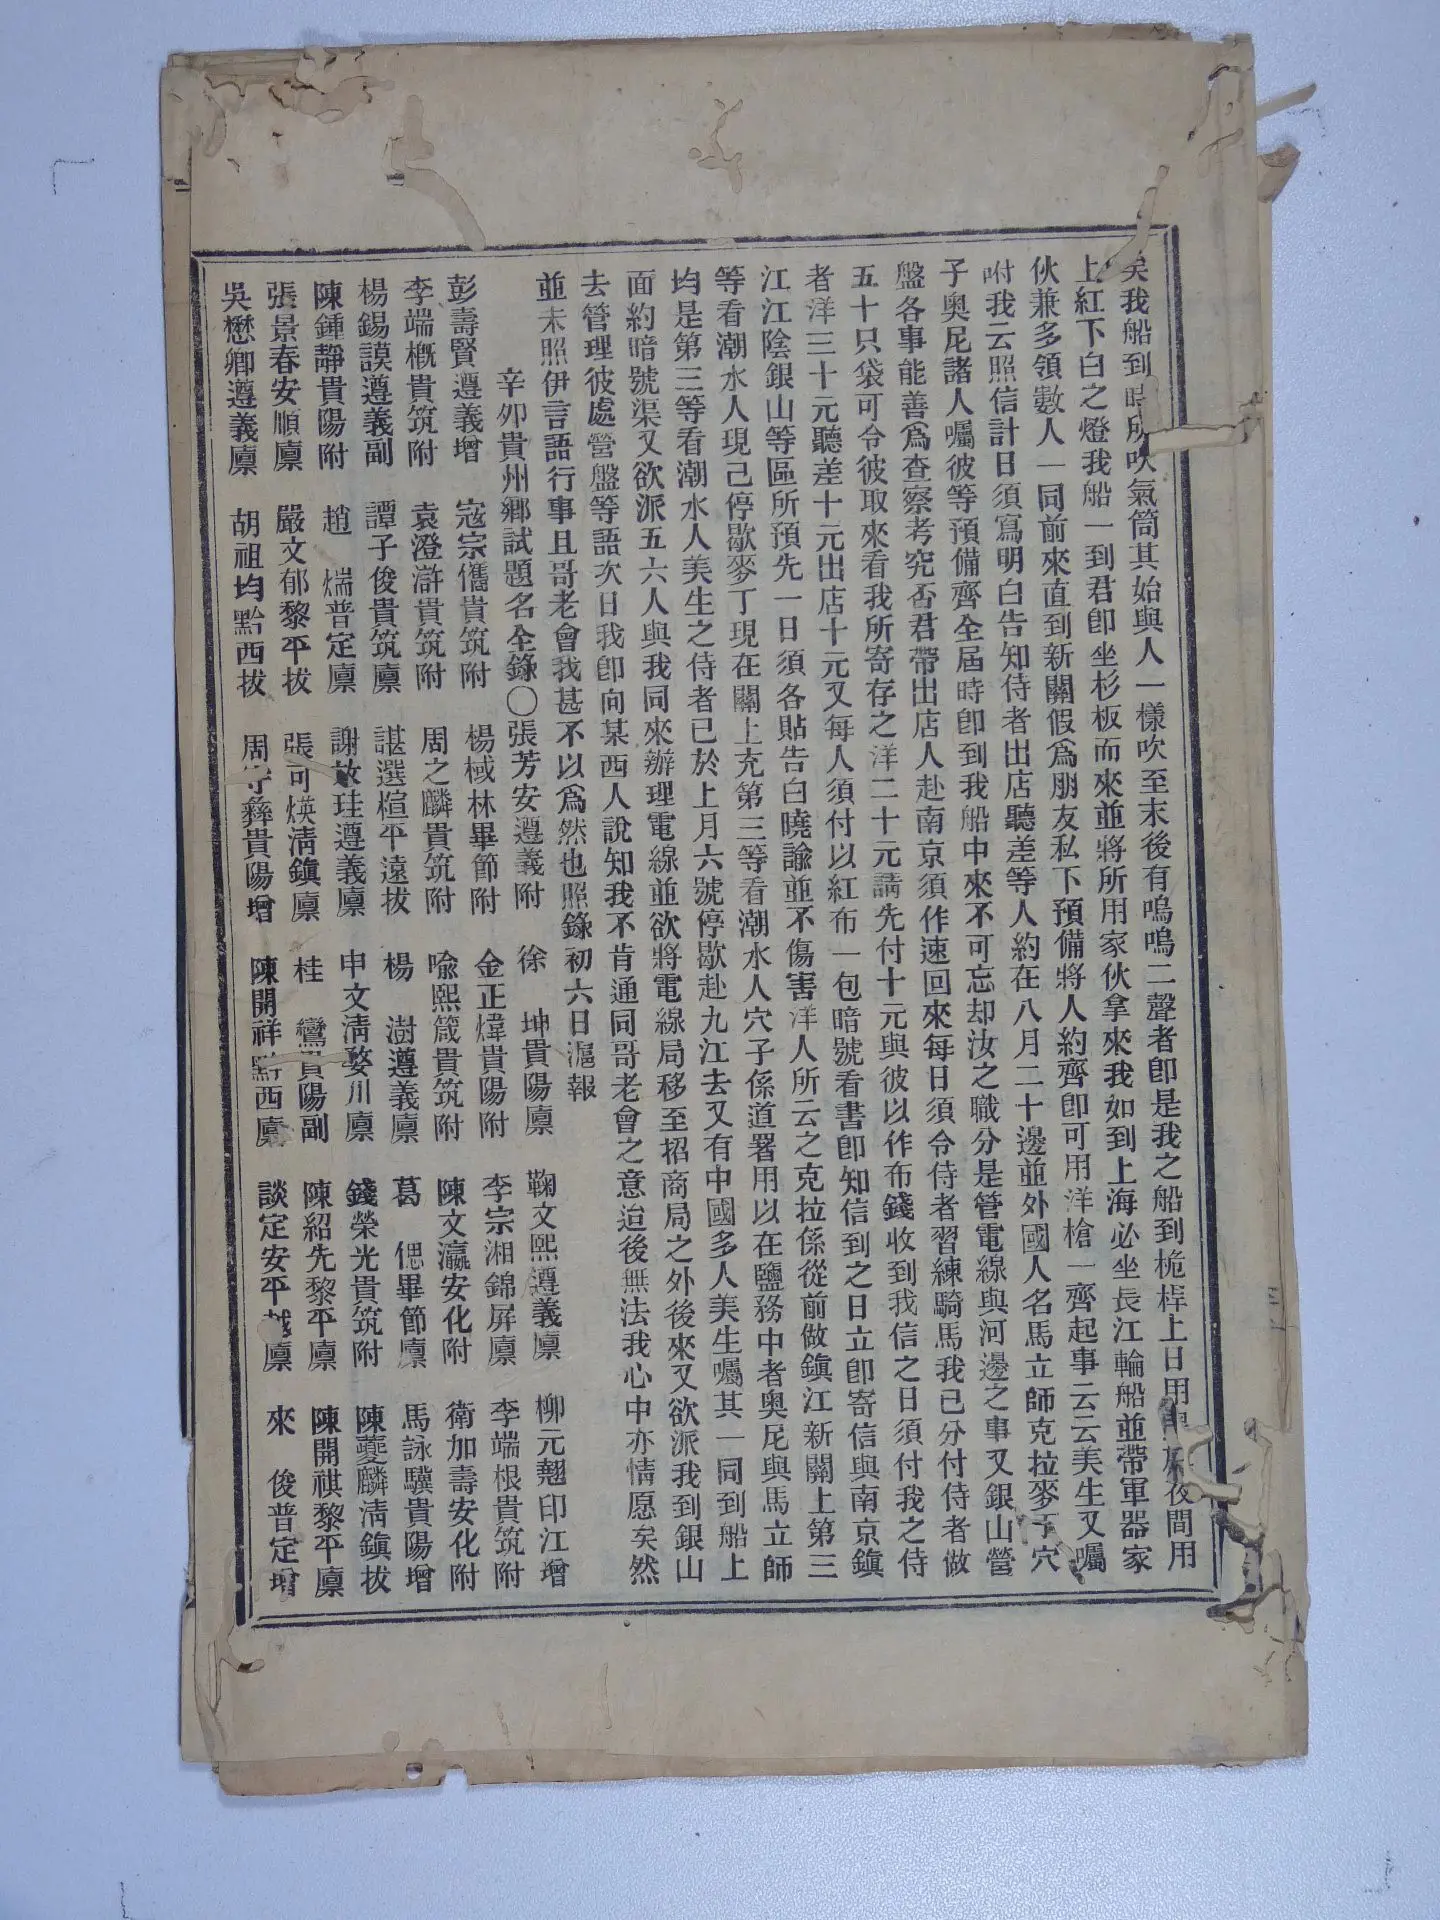 矣我船到時所吹氣筒其始與人一樣吹至末後有嗚嗚二聲者卽是我之船到桅桿上日用 夜間用
上紅下白之燈我船一到君卽坐杉板而來並將所用家伙拿來我如到上海必坐長江輪船並帶軍器家
伙兼多領數人一同前來直到新關假爲朋友私下預備將人約齊卽可用洋槍一齊起事云云美生又囑
咐我云照信計日須寫明白告知侍者出店聽差等人約在八月二十邊並外國人名馬立師克拉麥丁穴
子奧尼諸人囑彼等預備齊全屆時卽到我船中來不可忘却汝之職分是管電線與河邊之事又銀山營
盤各事能善爲查察考究否君帶出店人赴南京須作速回來每日須令侍者習練騎馬我已分付侍者做
五十只袋可令彼取來看我所寄存之洋二十元請先付十元與彼以作布錢收到我信之日須付我之侍
者洋三十元聽差十元出店十元又每人須付以紅布一包暗號看書卽知信到之日立卽寄信與南京鎮
江江陰銀山等區所預先一日須各貼告白曉諭並不傷害洋人所云之克拉係從前做鎮江新關上第三
等看潮水人現已停歇麥丁現在關上充第三等看潮水人穴子係道署用以在鹽務中者奧尼與馬立師
均是第三等看潮水人美生之侍者已於上月六號停歇赴九江去又有中國多人美生囑其一同到船上
面約暗號渠又欲派五六人與我同來辦理電線並欲將電線局移至招商局之外後來又欲派我到銀山
去管理彼處營盤等語次日我卽向某西人說知我不肯通同哥老會之意迨後無法我心中亦情愿矣然
並未照伊言語行事且哥老會我甚不以爲然也照錄初六日滬報
辛卯貴州鄉試題名全錄〇張芳安遵義附 徐 坤貴陽廪 鞠文熙遵義廪 柳元翹印江增
彭壽賢遵義增 寇宗儁貴筑附 楊棫林畢節附 金正煒貴陽附 李宗湘錦屏廪 李端根貴筑附
李端概貴筑附 袁澄滸貴筑附 周之麟貴筑附 喩熙箴貴筑附 陳文瀛安化附 衛加壽安化附
楊錫謨遵義副 譚子俊貴筑廪 諶選楦平遠拔 楊 澍遵義廪 葛 偲畢節廪 馬詠驥貴陽增
陳鍾靜貴陽附 趙 煓普定廪 謝 珪遵義廪 申文淸婺川廪 錢榮光貴筑附 陳夔麟淸鎭拔
張景春安順廪 嚴文郁黎平拔 張可煐淸鎭廪 桂 鸞貴陽副 陳紹先黎平廪 陳開祺黎平廪
吳懋卿遵義廪 胡祖均黔西拔 周 彝貴陽增 陳開祥黔西廪 談定安平越廪 來 俊普定增